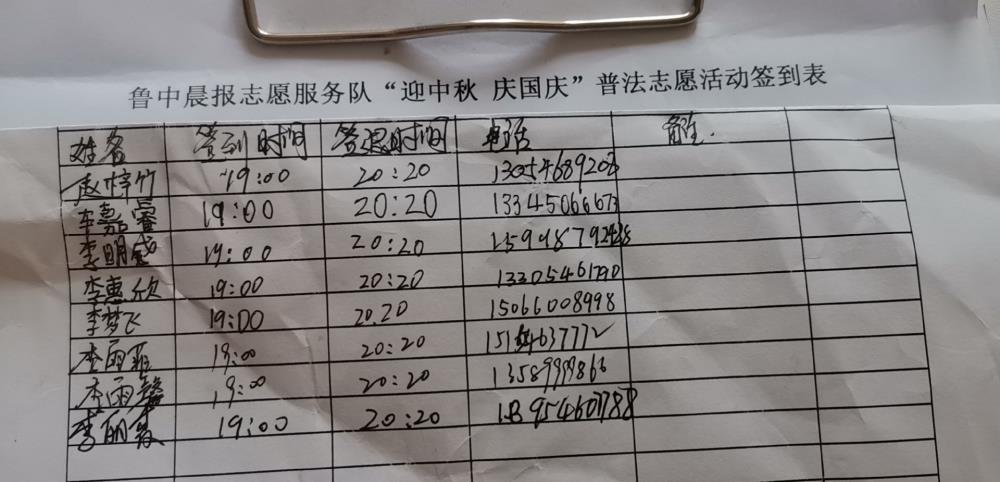 鲁中晨报志愿服务队“迎中秋 庆国庆”普法志愿活动签到表
姓名 签到时间 签退时间 电话 备注.
赵梓竹 19:00 20:20 13054689206
车嘉睿 19:00 20:20 13345066673
李明盛 19:00 20:20
李惠欣 19:00 20:20 13305461790
李梦飞 19:00 20.20 15066008998
李雨菲 19:00 20:20
李雨馨 19:00 20:20
李丽蓉 19:00 20:20